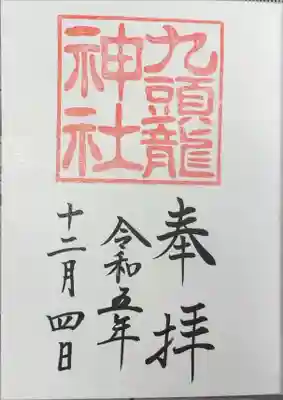 九頭龍
神社
奉拝
令和五年
十二月四日